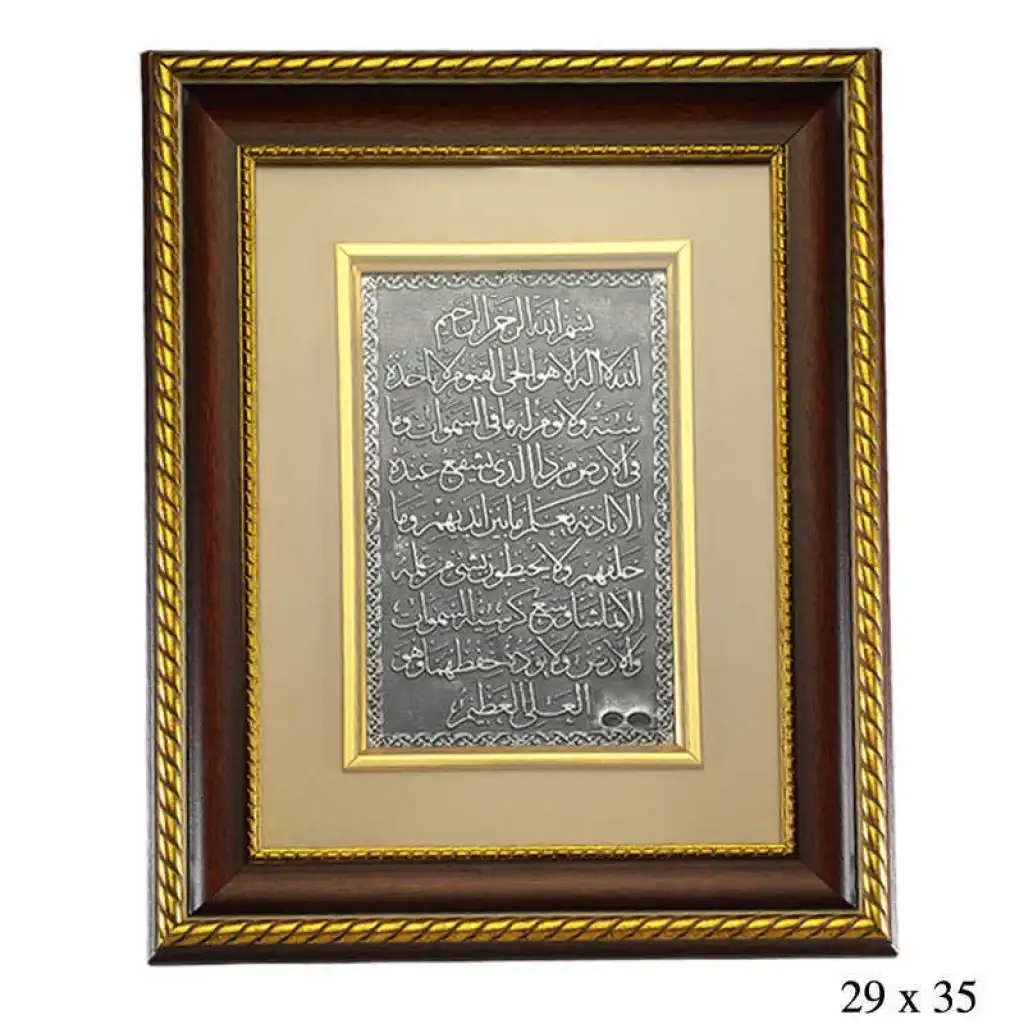 بسم الله الرحمن الرحيم
الله لا اله الا هو الحى القيوم لا تاخذه
سنة ولا نوم له ما فى السموات وما
فى الارض من ذا الذى يشفع عنده
الا باذنه يعلم ما بين ايديهم وما
خلفهم ولا يحيطون بشئ من علمه
الا بما شا وسع كرسيه السموات
والارض ولا يؤده حفظهما وهو
العلى العظيم
29 x 35